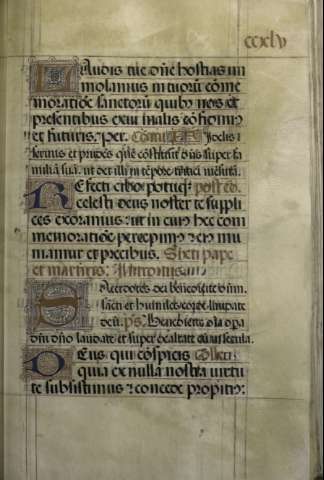 ccxlv
Laudis tue dñe hostias im
molamus in tuorũ cõme
moratiõe sanctorũ quibꝰ nos et
presentibus exui malis cõfidimꝰ
et futuris. Per. Cõmu Fidelis
seruus et prudẽs quẽ cõstituit dñs super fa
miliã suã. ut det illi in tẽpore tritici mẽsurã.
Refecti cibo potuqꝫ post cõ.
celesti deus noster te suppli
ces exoramus: ut in cuiꝰ hec com
memoratiõe percepimꝰ eiꝰ mu
niamur et precibus. Sixti pape
et martiris: Introitus
Sacerdotes dei benedicite dñm.
sancti et humiles corde laudate
deũ. ps. Benedicite oĩa opa
dñi dño laudate et super exaltate eũ in secula.
Deus qui cõspicis Collecta
quia ex nulla nostra uirtu
te subsistimus: concede propitiꝰ: